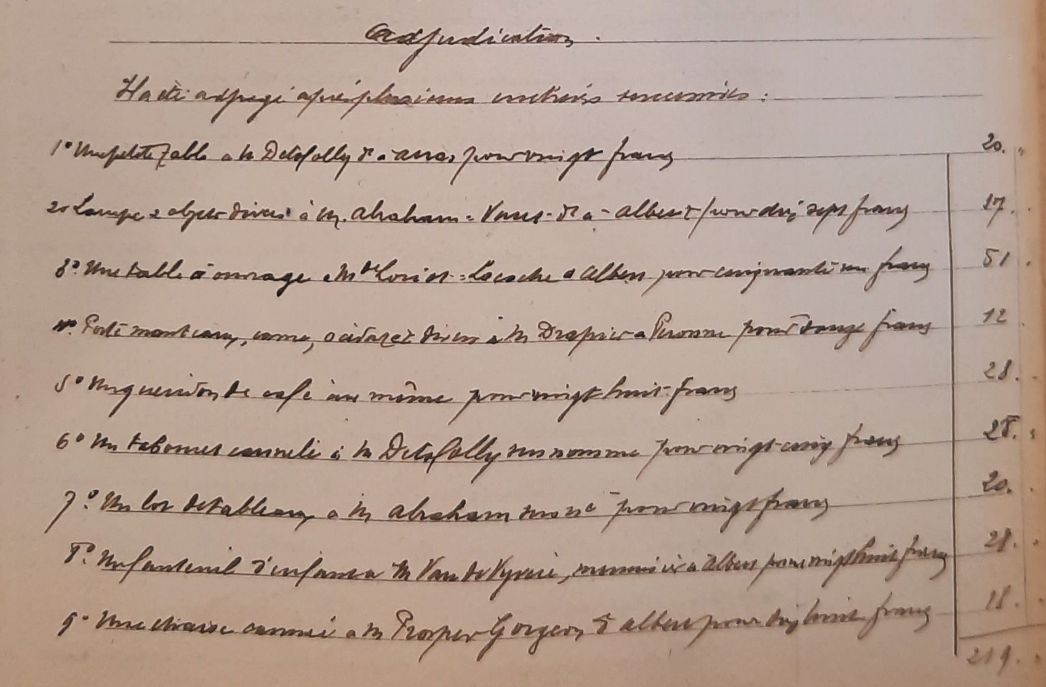 Adjudication.
Il a été adjugé après plusieurs enchères successives :
1° Une petite table à M Detofolly d'à Arras pour vingt francs 20.
2° Lampe 2 objets divers à M. Abraham = d'à - Albert pour dix sept francs 17.
3° Une table à ouvrage à Mde Loriot = à Albert pour cinquante un francs 51.
4° Porte manteaux, divers à M Drapier à Péronne pour douze francs 12
5° Un guéridon de café au même pour vingt huit francs 28.
6° Un tabouret cannelé à M Detofolly susnommé pour vingt cinq francs 25.
7° Un lot de tableaux à M Abraham pour vingt francs 20.
8° Un fauteuil d'enfant à M à Albert pour vingt huit francs 28.
9° Une chaise cannée à M Prosper Gorgeon d'Albert pour dix huit francs 18.
219.